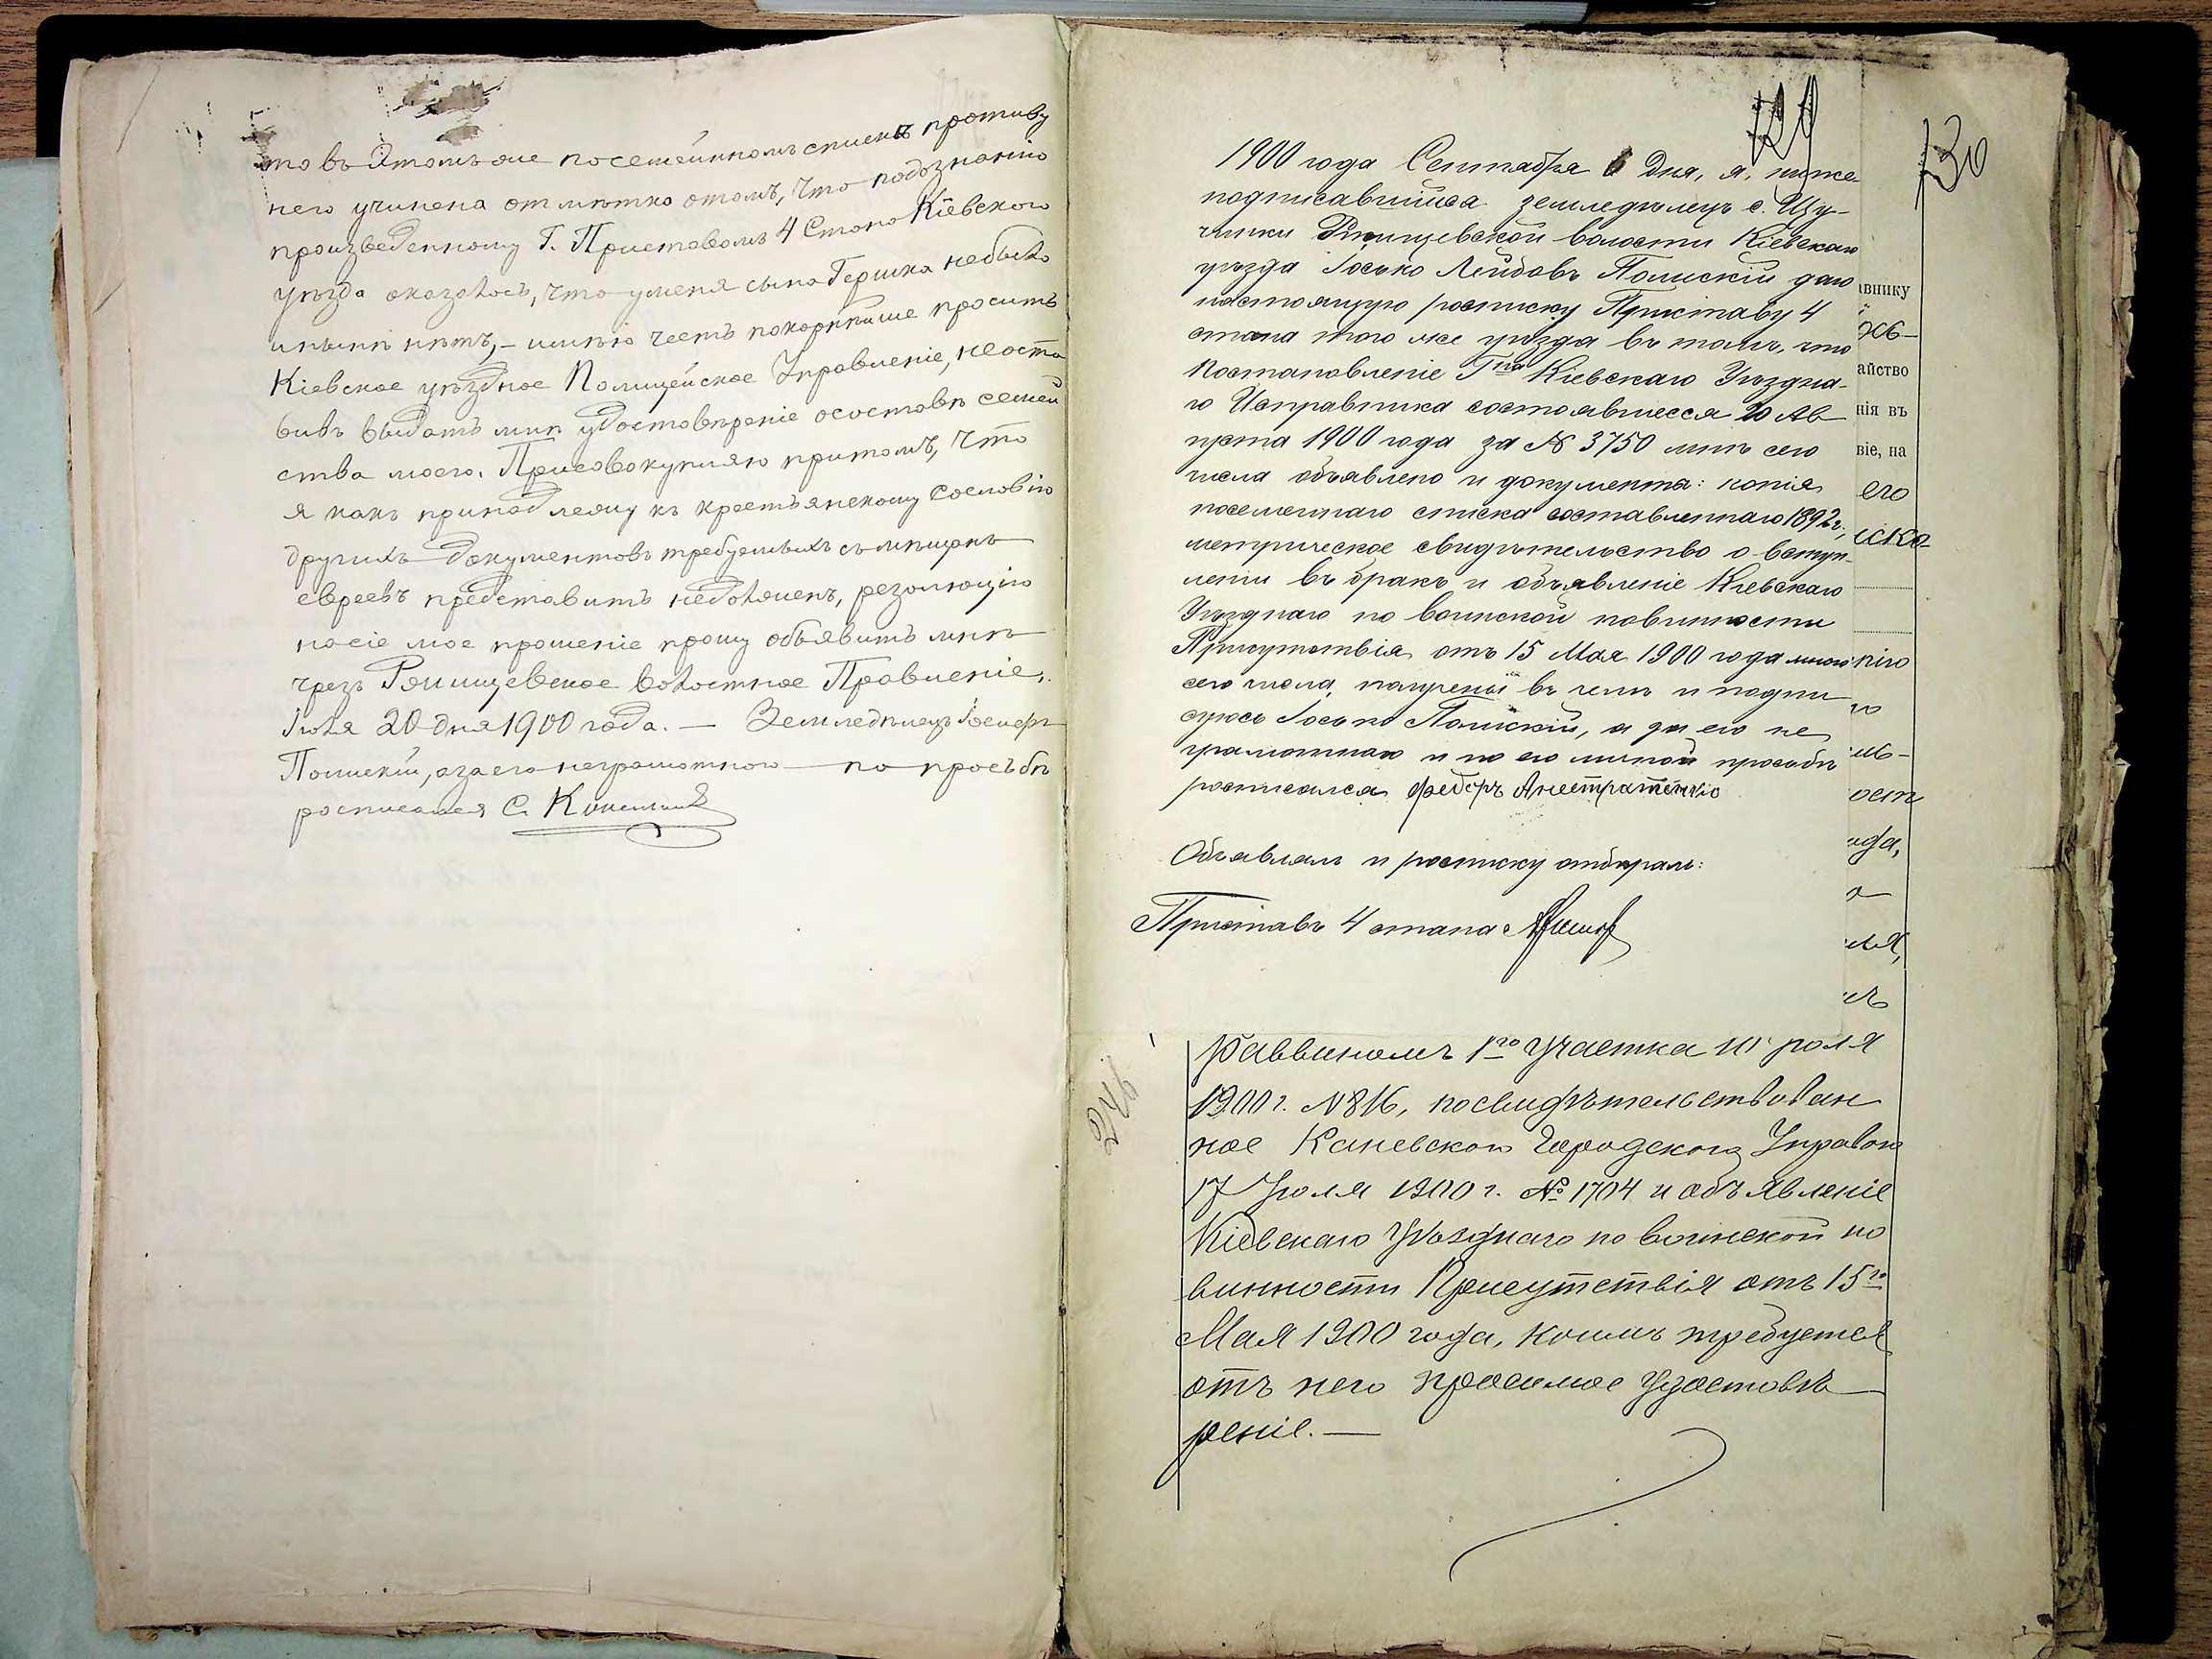 то въ этомъ же посемейномъ спискѣ противу
него учинена отмѣтка отомъ, что подознанію
произведенному Г. Приставомъ 4 Стана Кіевскаго
уѣзда оказалось, что уменя сына Гершка небыло
иныне нѣтъ, – имѣю честь покорнѣйше просить
Кіевское уѣздное Полицейское Управленіе, неоста
вивъ выдать мнѣ удостовѣреніе осоставѣ семей
ства моего. Присовокупляю притомъ, что
я какъ принадлежу къ крестьянскому Сословію
другихъ документовъ требуемыхъ съ мѣщанъ
евреевъ представить недолженъ, резолюцію
насіе мое прошеніе прошу объявить мнѣ
чрезъ Ржищевское волостное Правленіе,
Іюля 20 дня 1900 года. — Земледѣлецъ Іосифъ
Полискій, азаего неграмотного по просьбѣ
росписался С.
129
1900 года Сентября 6 дня, я, ниже
подписавшійся земледѣлецъ с. Щу-
чинки Ржищевской волости Кіевскаго
уѣзда Іосько Лейбовъ Полискій даю
настоящую росписку Приставу 4
стана того же уѣзда въ томъ, что
Постановленіе Г-на Кіевскаго Уѣздна-
го Исправника состоявшееся 20 Ав
густа 1900 года за № 3750 мнѣ сего
числа объявлено и документы: копія
посемейнаго списка составленнаго 1892 г.,
метрическое свидѣтельство о вступ-
леніи въ бракъ и объявленіе Кіевскаго
Уѣзднаго по воинской повинности
Присутствія отъ 15 Мая 1900 года мною
сего числа получены въ чемъ и подпи
суюсь Іосько Полискій, а за его не
грамотнаго и по его личной просьбѣ
росписался Федоръ
Объявлялъ и росписку отбиралъ:
Приставъ 4 стана
130
авнику
айство
нія въ
віе, на
его
иско-
нію
ость
ода,
246
Раввиномъ 1го участка Іюля
1900 г. № 816, посвидѣтельствован
ное Каневскою Городскою Управою
17 Іюля 1900 г. № 1704 и объявленіе
Кіевскаго Уѣзднаго по воинской по
винности Присутствія отъ 15го
Мая 1900 года, коимъ требуется
отъ него просимое удостовѣ
реніе. —